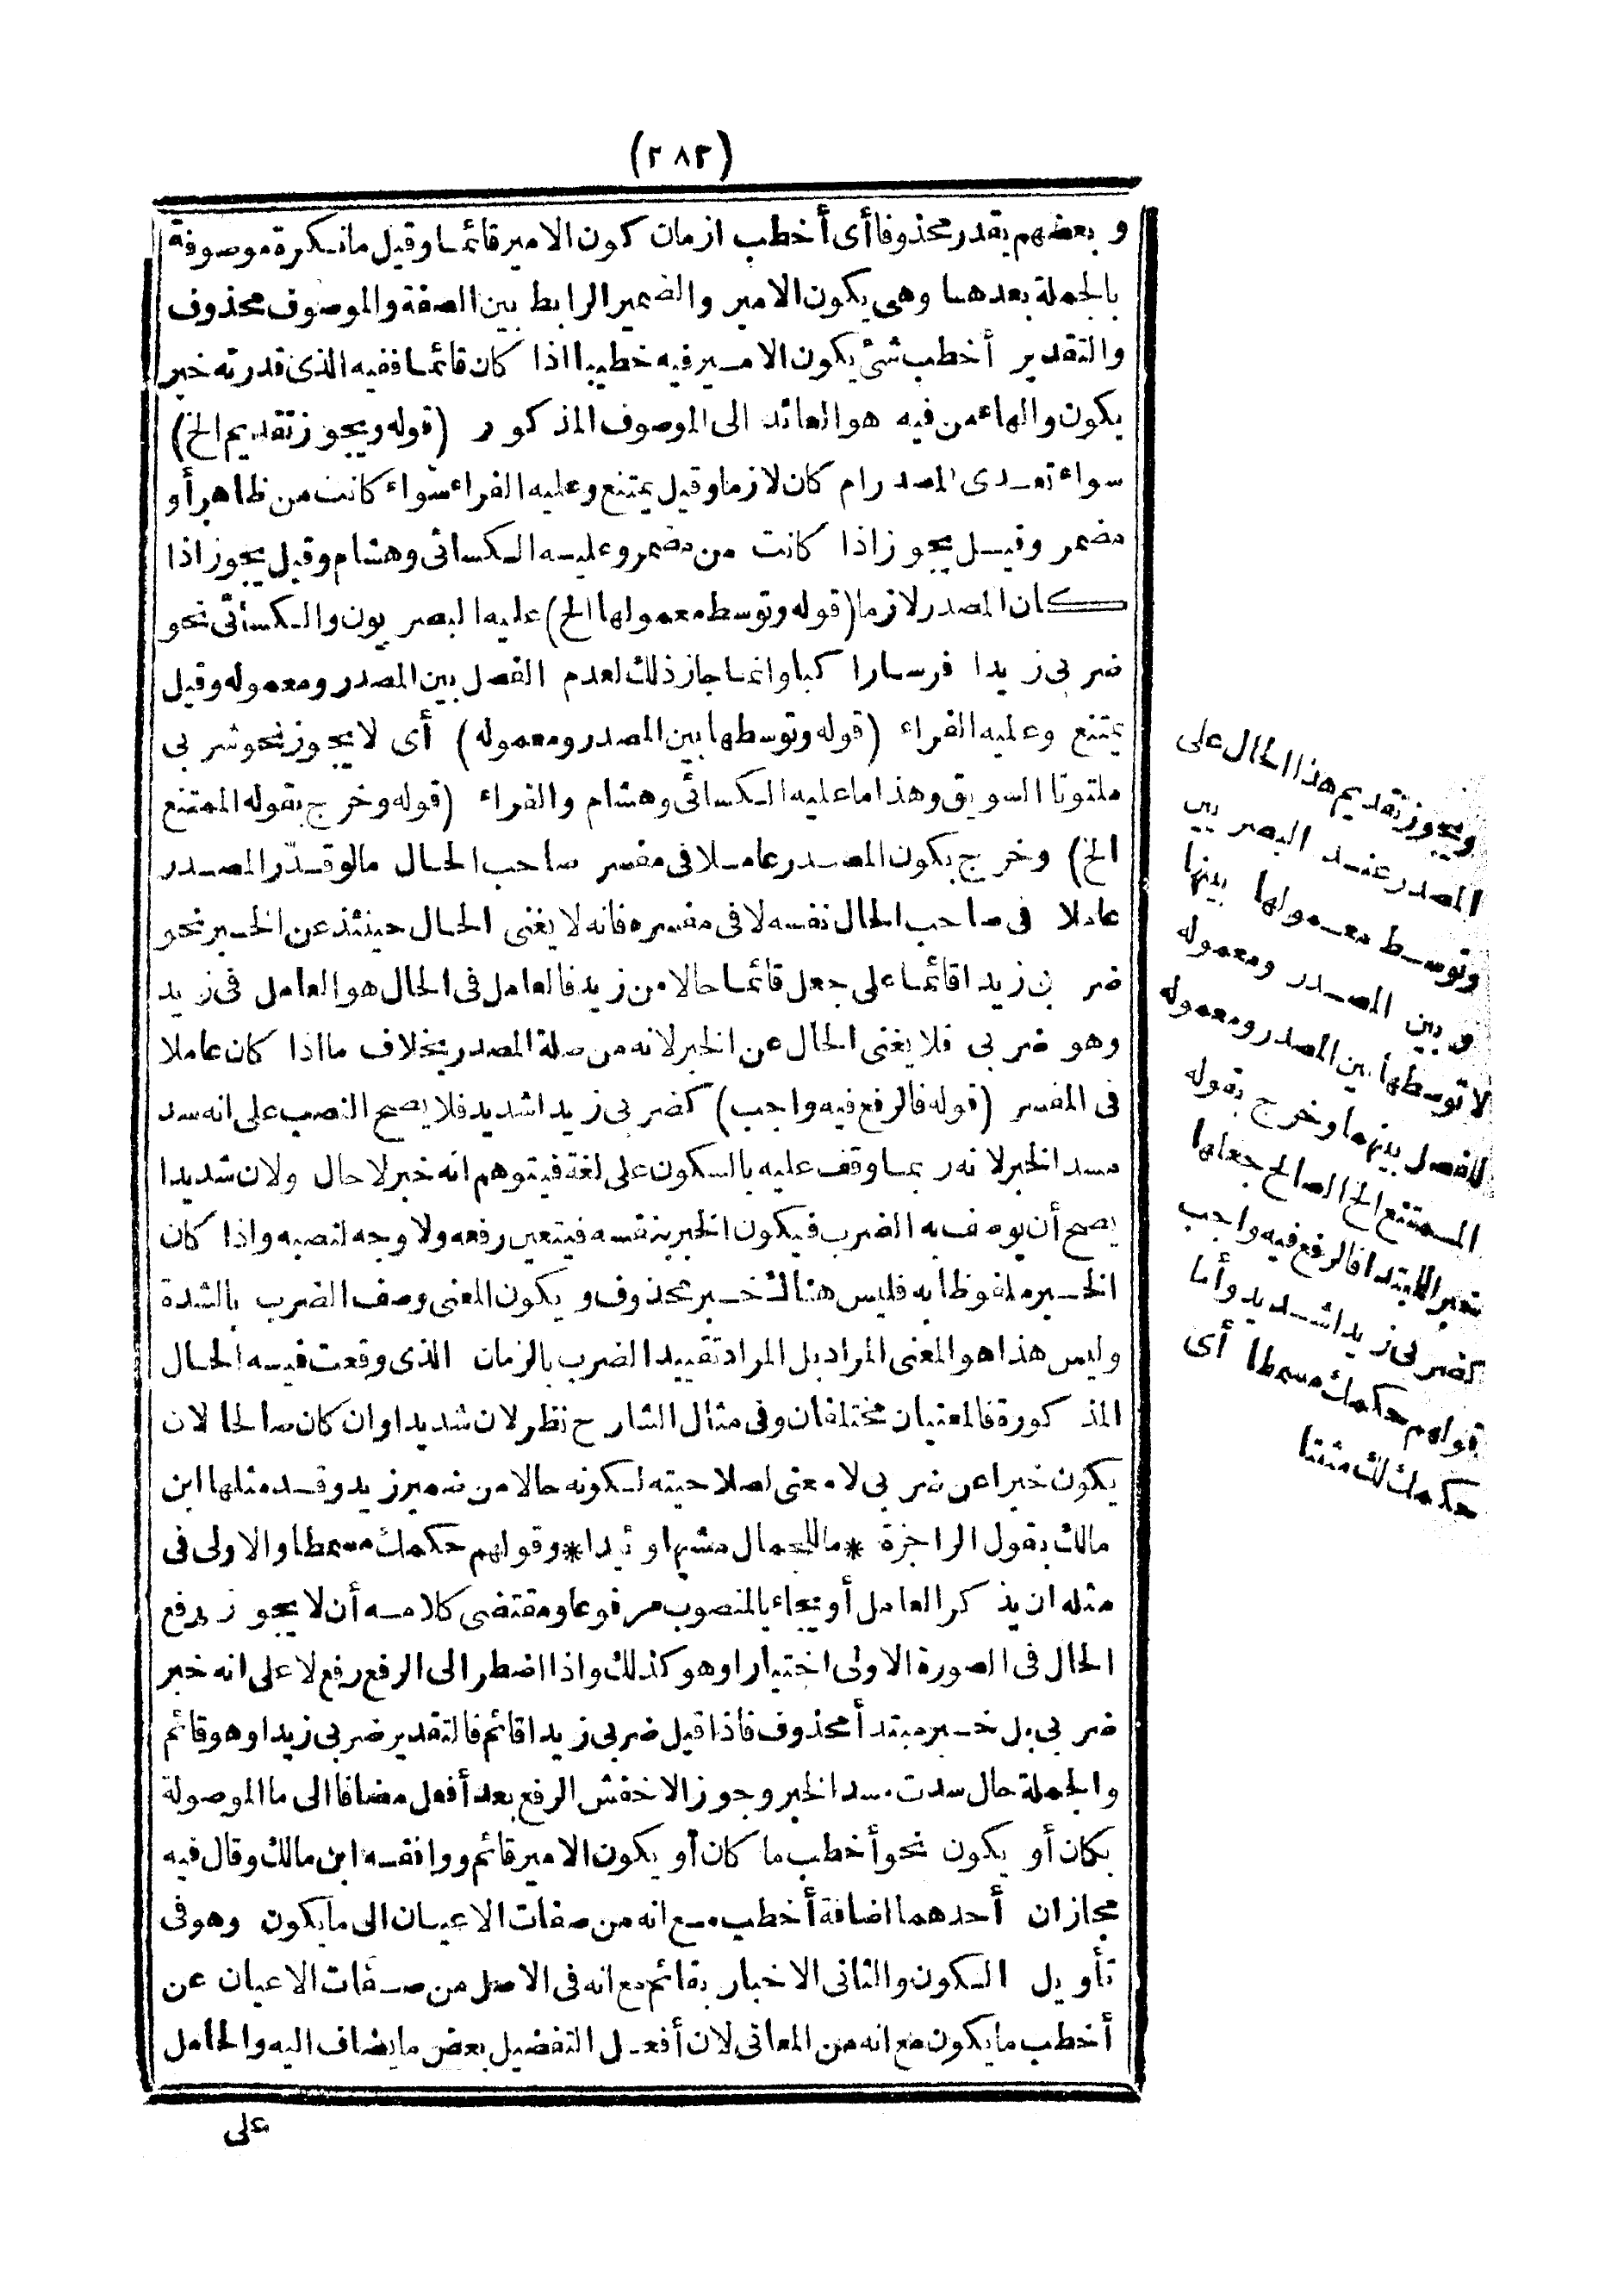 (٢٨٣)
وبعضهم يقدر محذوفا أى أخطب ازمان كون الامير قائما وقيل ما نكرة موصوفة
بالجملة بعدها وهى يكون الامير والضمير الرابط بين الصفة والموصوف محذوف
والتقدير أخطب شئ يكون الامير فيه خطيبا اذا كان قائما ففيه الذى قدرته خبر
يكون والهاء من فيه هو العائد الى الموصوف المذكور (قوله ويجوز تقديم الخ)
سواء تعدى المصدر ام كان لازما وقيل يمتنع وعليه الفراء سواء كانت من ظاهر أو
مضمر وقيل يجوز اذا كانت من مضمر وعليه الكسائى وهشام وقيل يجوز اذا
كان المصدر لازما (قوله وتوسط معمولها الخ) عليه البصريون والكسائى نحو
ضربى زيدا فرسا راكبا وانما جاز ذلك لعدم الفصل بين المصدر ومعموله وقيل
يمتنع وعليه الفراء (قوله وتوسطها بين المصدر ومعموله) أى لا يجوز نحو شربى
ملتوتا السويق وهذا ما عليه الكسائى وهشام والفراء (قوله وخرج بقوله الممتنع
الخ) وخرج بكون المصدر عاملا فى مفسر صاحب الحال ما لو قدّر المصدر
عاملا فى صاحب الحال نفسه لا فى مفسره فانه لا يغنى الحال حينئذ عن الخبر نحو
ضربى زيدا قائما على جعل قائما حالا من زيد فالعامل فى الحال هو العامل فى زيد
وهو ضربى فلا يغنى الحال عن الخبر لانه من صلة المصدر بخلاف ما اذا كان عاملا
فى المفسر (قوله فالرفع فيه واجب) كضربى زيدا شديد فلا يصح النصب على انه سد
مسد الخبر لانه ربما وقف عليه بالسكون على لغة فيتوهم انه خبر لا حال ولان شديدا
يصح أن يوصف به الضرب فيكون الخبر بنفسه فيتعين رفعه ولا وجه لنصبه واذا كان
الخبر ملفوظا به فليس هناك خبر محذوف ويكون المعنى وصف الضرب بالشدة
وليس هذا هو المعنى المراد بل المراد تقييد الضرب بالزمان الذى وقعت فيه الحال
المذكورة فالمعنيان مختلفان وفى مثال الشارح نظر لان شديدا وان كان صالحا لان
يكون خبرا عن ضربى لا معنى لصلاحيته لكونه حالا من ضمير زيد وقد مثلها ابن
مالك بقول الراجزة *ما للجمال مشيها وئيدا* وقولهم حكمك مسمطا والاولى فى
مثله ان يذكر العامل أو يجاء بالمنصوب مرفوعا ومقتضى كلامه أن لا يجوز رفع
الحال فى الصورة الاولى اختيارا وهو كذلك واذا اضطر الى الرفع رفع لا على انه خبر
ضربى بل خبر مبتدأ محذوف فاذا قيل ضربى زيدا قائم فالتقدير ضربى زيدا وهو قائم
والجملة حال سدت مسد الخبر وجوز الاخفش الرفع بعد أفعل مضافا الى ما الموصولة
بكان أو يكون نحو أخطب ما كان أو يكون الامير قائم ووافقه ابن مالك وقال فيه
مجازان أحدهما اضافة أخطب مع انه من صفات الاعيان الى ما يكون وهو فى
تأويل الكون والثانى الاخبار بقائم مع انه فى الاصل من صفات الاعيان عن
أخطب ما يكون مع انه من المعانى لان أفعل التفضيل بعض ما يضاف اليه والحامل
على
ويجوز تقديم هذا الحال على
المصدر عند البصريين
وتوسط معمولها بينها
وبين المصدر ومعموله
لا توسطها بين المصدر ومعموله
للفصل بينهما وخرج بقوله
الممتنع الخ الصالح جعلها
خبر الابتدا فالرفع فيه واجب
كضربى زيدا شديد وأما
قولهم حكمك مسمطا أى
حكمك لك مثبتا